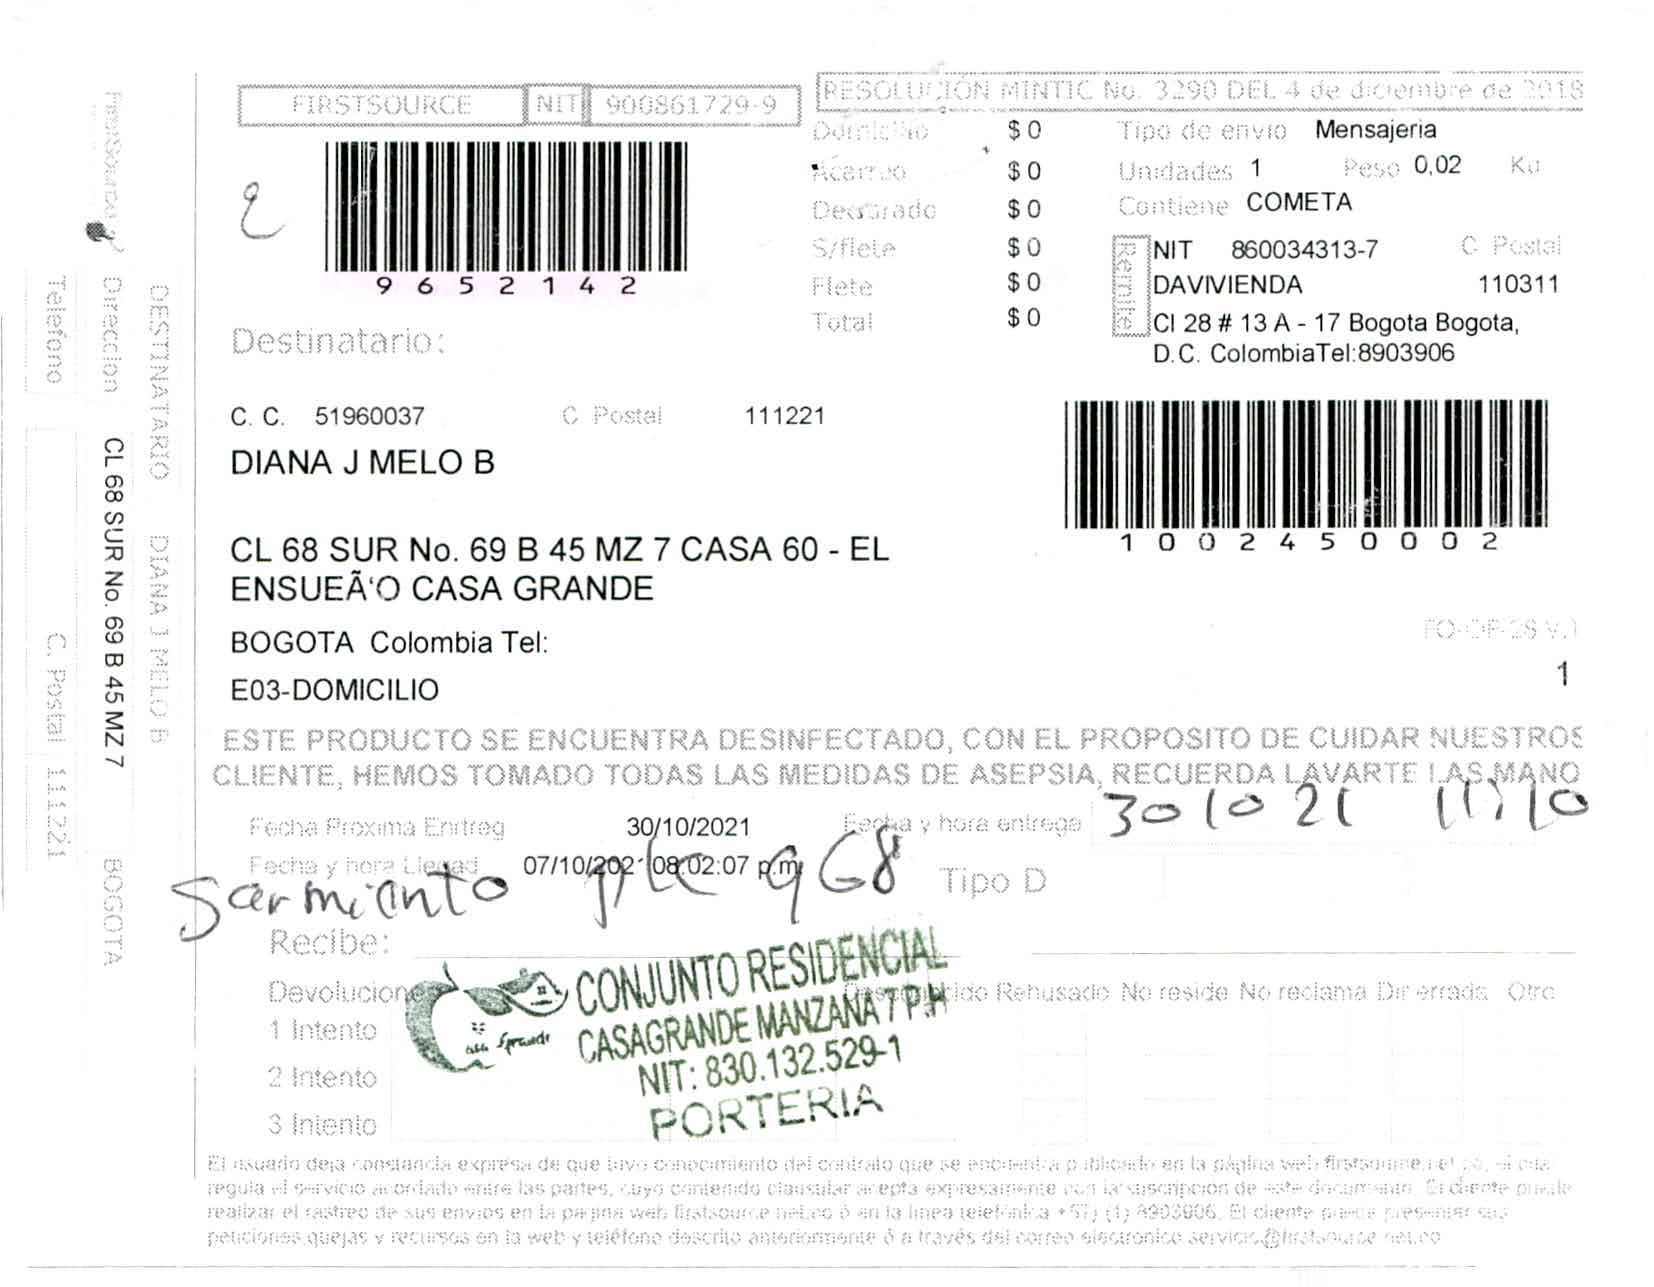 FIRSTSOURCE NIT 900861729-9
RESOLUCIÓN MINTIC No. 3290 DEL 4 de diciembre de 2018
9652142
Domicilio $ 0
Acarreo $ 0
$ 0
S/flete $ 0
Flete $ 0
Total $ 0
Tipo de envio Mensajeria
Unidades 1 Peso 0,02 Kg
Contiene COMETA
Remite
NIT 860034313-7 C Postal
DAVIVIENDA 110311
Cl 28 # 13 A - 17 Bogota Bogota,
D.C. ColombiaTel:8903906
1002450002
Destinatario:
C. C. 51960037 C Postal 111221
DIANA J MELO B
CL 68 SUR No. 69 B 45 MZ 7 CASA 60 - EL
ENSUEÃ‘O CASA GRANDE
BOGOTA Colombia Tel:
E03-DOMICILIO
FO-OP-28 V.1
1
ESTE PRODUCTO SE ENCUENTRA DESINFECTADO, CON EL PROPOSITO DE CUIDAR NUESTROS
CLIENTE, HEMOS TOMADO TODAS LAS MEDIDAS DE ASEPSIA, RECUERDA LAVARTE LAS MANO
Fecha Proxima Entreg 30/10/2021 Fecha y hora entrega 30 10 21 11:10
Fecha y hora Llegad 07/10/2021 08:02:07 p.m. Tipo D
Sarmiento pte 968
Recibe:
Devolucion Desconocido Rehusado No reside No reclama Dir errada Otro
1 Intento
2 Intento
3 Intento
CONJUNTO RESIDENCIAL
CASAGRANDE MANZANA 7 P.H
NIT: 830.132.529-1
PORTERIA
Casa Grande
El usuario deja constancia expresa de que tuvo conocimiento del contrato que se encuentra publicado en la página web firstsource.net.co, el cual
regula el servicio acordado entre las partes, cuyo contenido clausular acepta expresamente con la suscripción de este documento. El cliente puede
realizar el rastreo de sus envios en la pagina web firstsource.net.co ó en la linea telefónica +57) (1) 8903906. El cliente puede presentar sus
peticiones,quejas y recursos en la web y teléfono descrito anteriormente ó a través del correo electronico servicio@firstsource.net.co
FirstSource
DESTINATARIO DIANA J MELO B
Direccion CL 68 SUR No. 69 B 45 MZ 7 BOGOTA
Telefono C. Postal 111221